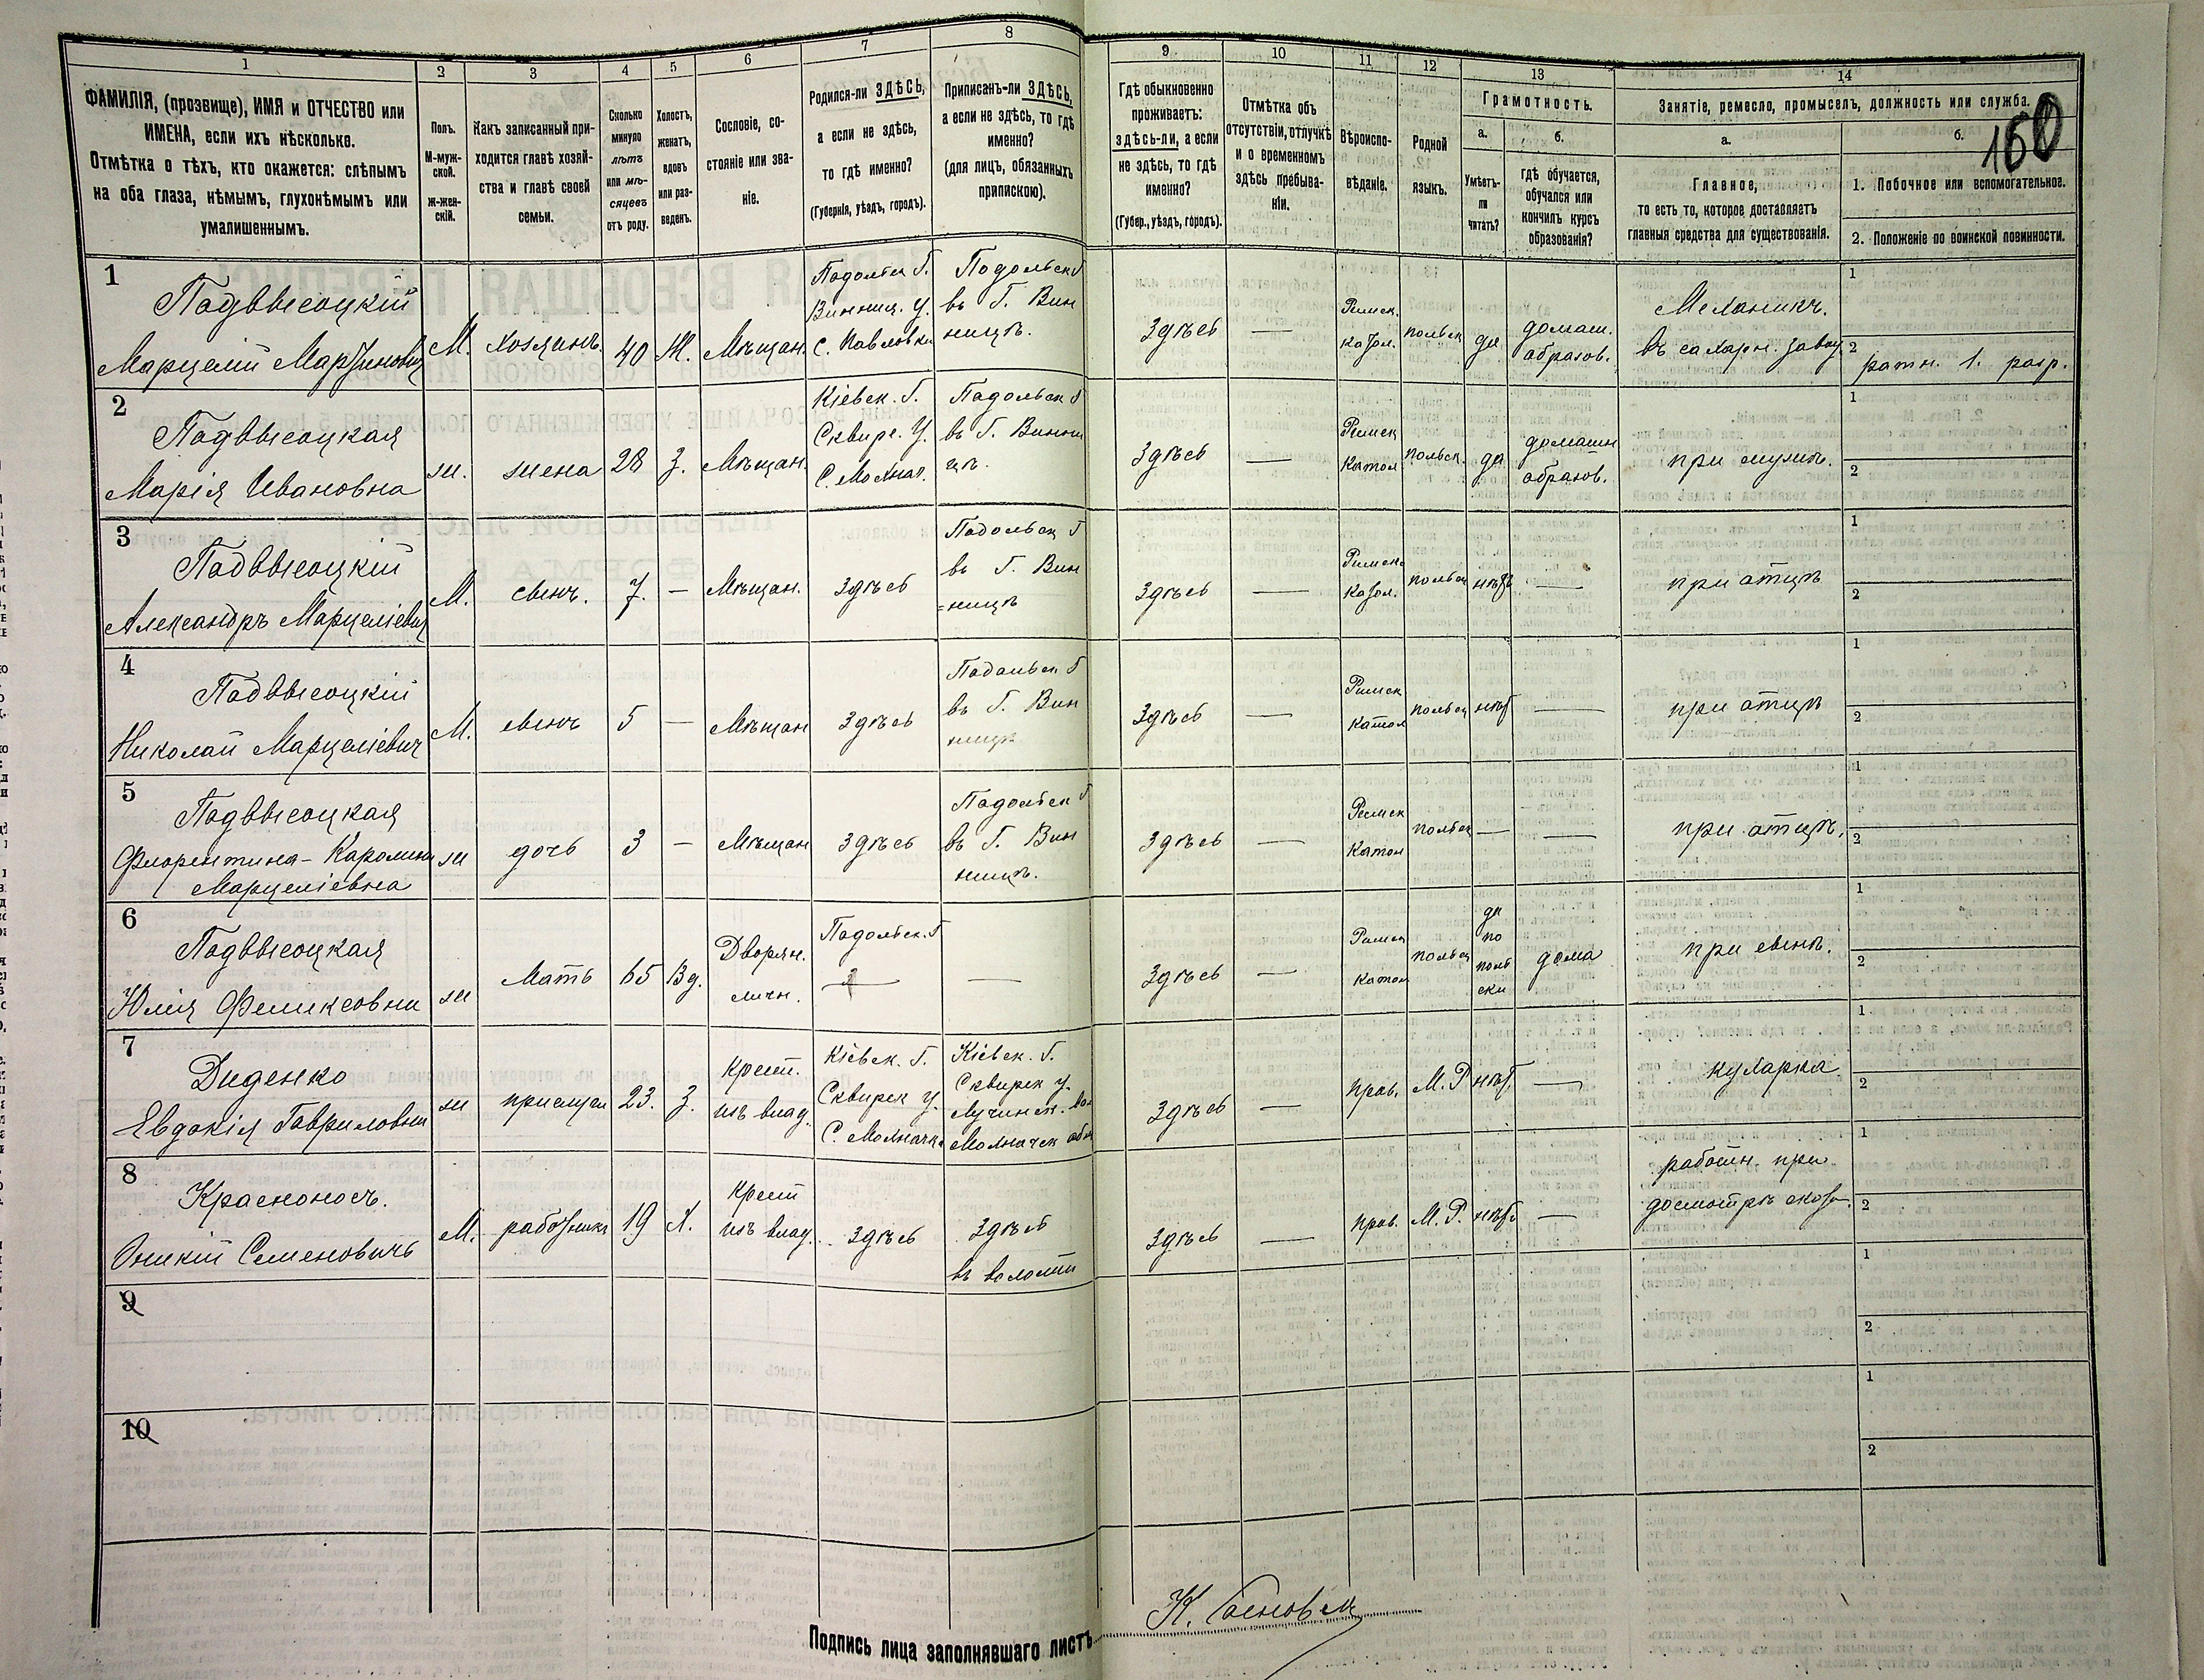 1 2 3 4 5 6 7 8 9 10 11 12 13 14
ФАМИЛІЯ, (прозвище), ИМЯ и ОТЧЕСТВО или
ИМЕНА, если ихъ нѣсколько.
Отмѣтка о тѣхъ, кто окажется: слѣпымъ
на оба глаза, нѣмымъ, глухонѣмымъ или
умалишеннымъ.
Полъ.
М-муж-
ской.
ж-жен-
скій.
Какъ записанный при-
ходится главѣ хозяй-
ства и главѣ своей
семьи.
Сколько
минуло
лѣтъ
или мѣ-
сяцевъ
отъ роду.
Холостъ,
женатъ,
вдовъ
или раз-
веденъ.
Сословіе, со-
стояніе или зва-
ніе.
Родился-ли ЗДѢСЬ,
а если не здѣсь,
то гдѣ именно?
(Губернія, уѣздъ, городъ).
Приписанъ-ли ЗДѢСЬ,
а если не здѣсь, то гдѣ
именно?
(для лицъ, обязанныхъ
припискою).
Гдѣ обыкновенно
проживаетъ:
здѣсь-ли, а если
не здѣсь, то гдѣ
именно?
(Губер., уѣздъ, городъ).
Отмѣтка объ
отсутствіи, отлучкѣ
и о временномъ
здѣсь пребыва-
ніи.
Вѣроиспо-
вѣданіе.
Родной
языкъ.
Грамотность.
а.
Умѣетъ-
ли
читать?
б.
гдѣ обучается,
обучался или
кончилъ курсъ
образованія?
Занятіе, ремесло, промыселъ, должность или служба.
160
а.
Главное,
то есть то, которое доставляетъ
главныя средства для существованія.
б.
1. Побочное или вспомогательное.
2. Положеніе по воинской повинности.
1
Подвысоцкій
Марцелій Мартиновичъ
М.
хозяинъ.
40
Ж.
Мѣщан.
Подольск Г.
Винниц. У.
с. Павловка
Подольск Г
въ Г. Вин
ницѣ.
Здѣсь
—
Римск.
кафол.
польск
да
домаш.
образов.
Механикъ.
въ сахарн. завод
1
2
ратн. 1. разр.
2
Подвысоцкая
Марія Ивановна
ж.
жена
28
З.
Мѣщан.
Кіевск. Г.
Сквир. У.
С. Молчан.
Подольск Г
въ Г. Винни
цѣ.
Здѣсь
—
Римск
катол
польск.
да
домашн
образов.
при мужѣ.
1
2
3
Подвысоцкій
Александръ Марцеліевич
М.
сынъ.
7.
—
Мѣщан.
Здѣсь
Подольск Г
въ Г. Вин
=ницѣ
Здѣсь
—
Римск.
кафол.
польск
нѣтъ
—
при отцѣ
1
2
4
Подвысоцкій
Николай Марцеліевич
М.
сынъ
5
—
Мѣщан
Здѣсь
Подольск Г
въ Г. Вин
ницѣ
Здѣсь
—
Римск
катол
польск
нѣт
—
при отцѣ
1
2
5
Подвысоцкая
Флорентина-Каролина
Марцеліевна
ж
дочь
3
—
Мѣщан
Здѣсь
Подольск Г
въ Г. Вин
ницѣ.
Здѣсь
—
Римск
катол
польск
—
—
при отцѣ.
1
2
6
Подвысоцкая
Юлія Феликсовна
ж
Мать
65
Вд.
Дворян.
личн.
Подольск. Г
—
Здѣсь
—
Римск
катол
польск
да
по
поль
ски
дома
при сынѣ.
1
2
7
Диденко
Евдокія Гавриловна
ж
прислуга
23.
З.
Крест.
изъ влад.
Кіевск. Г.
Сквирск У.
С. Молчан.
Кіевск. Г.
Сквирск У.
Лучинск. вол
Молчанск общ
Здѣсь
—
прав.
М. Р.
нѣт.
—
кухарка
1
2
8
Красноносъ.
Оникій Семеновичъ
М.
работникъ
19
Х.
Крест
изъ влад.
Здѣсь
Здѣсь
въ волости
Здѣсь
—
прав.
М. Р.
нѣтъ
—
работн. при
досмотрѣ скота.
1
2
9
1
2
10
1
2
Подпись лица заполнявшаго листъ